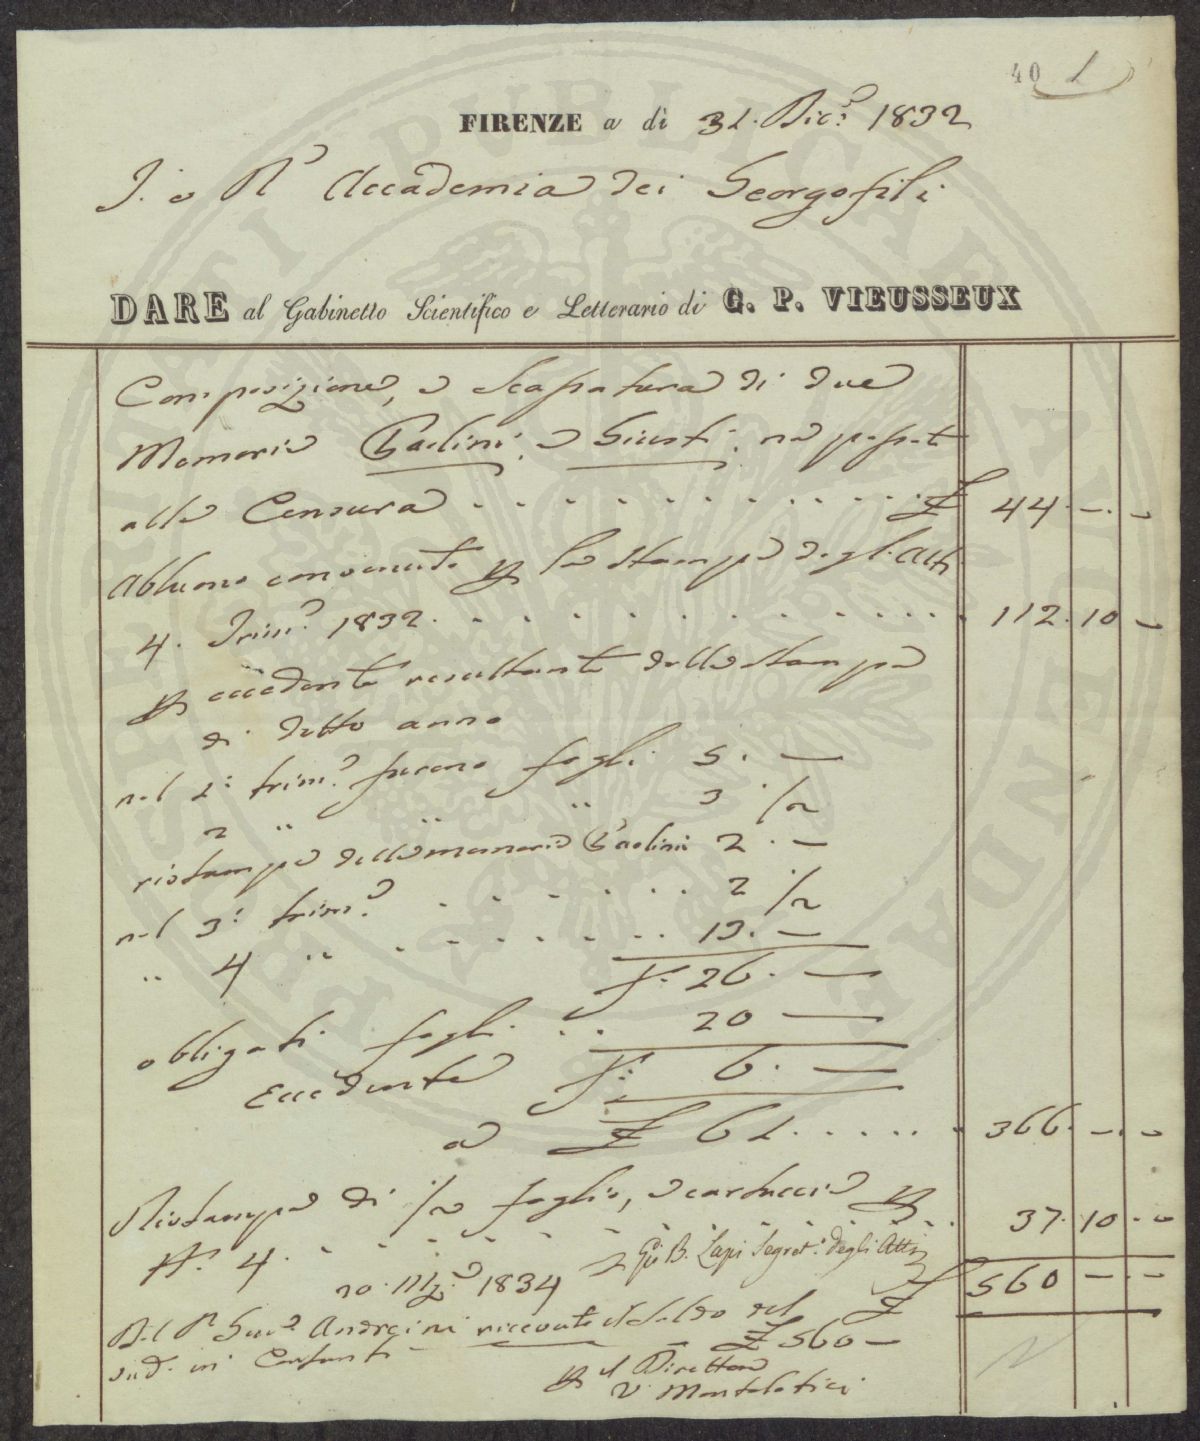 40 1
FIRENZE a di 31. Dic.e 1832
I. e R. Accademia dei Georgofili
DARE al Gabinetto Scientifico e Letterario di G. P. VIEUSSEUX
Composizione, e scassatura di due
Memorie Paolini, e Giusti, non passate
alla Censura . . . . . . . . . . . . £ 44. —. —
Abbuono convenuto p la stampa degli Atti
4. Trim.e 1832 . . . . . . . . . . . . 112. 10 —
p eccedente resultante dalla stampa
di detto anno
nel 1.° trim.e furono fogli 5. —
2 " " " 3 1/2
ristampa della memoria Paolini 2. —
nel 3.° trim.e . . . . . . . 2 1/2
" 4 " . . . . . . . . 13. —
f.i 26. —
obbligati fogli . . 20 —
Eccedente f.i 6. —
a £ 61. . . . . . 366. —. —
Ristampa di 1/2 foglio, e carticcie p
N. 4. . . . . . . . . . 37. 10. —
Gio B. Lapi Segret.o degli Atti
£ 560 —. —
20. Marz.o 1834
Del Andreini ricevuto il saldo del
sud. in Contanti — £ 560 —
p il Direttore
V. Montelatici